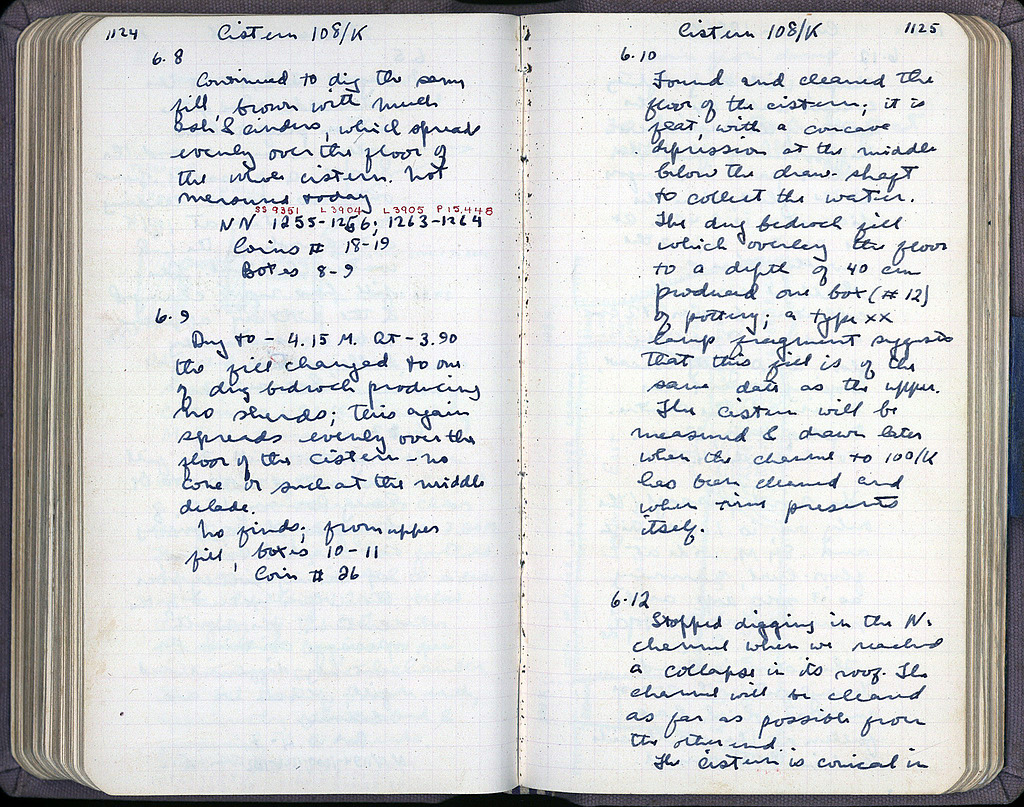 1124 Cistern 108/K
6.8
Continued to dig the same
fill, brown with much
ash & cinders, which spreads
evenly over the floor of
the whole cistern. Not
measured today
SS 9351 L 3904 L 3905 P 15,448
NN 1255-1256; 1263-1264
Coins # 18-19
Boxes 8-9
6.9
Dug to - 4.15 M. At - 3.90
the fill changed to one
of dug bedrock producing
no sherds; this again
spreads evenly over the
floor of the cistern - no
cone or such at the middle
No finds; from upper
fill, boxes 10-11
Coin # 26
Cistern 108/K 1125
6.10
Found and cleaned the
floor of the cistern; it is
flat, with a concave
depression at the middle
below the draw-shaft
to collect the water.
The dug bedrock fill
which overlay the floor
to a depth of 40 cm
produced one box (# 12)
of pottery; a type XX
lamp fragment suggests
that this fill is of the
same date as the upper.
The cistern will be
measured & drawn later
when the channel to 100/K
has been cleaned and
when time presents
itself.
6.12
Stopped digging in the N.
channel when we reached
a collapse in its roof. The
channel will be cleaned
as far as possible from
the other end.
The cistern is conical in